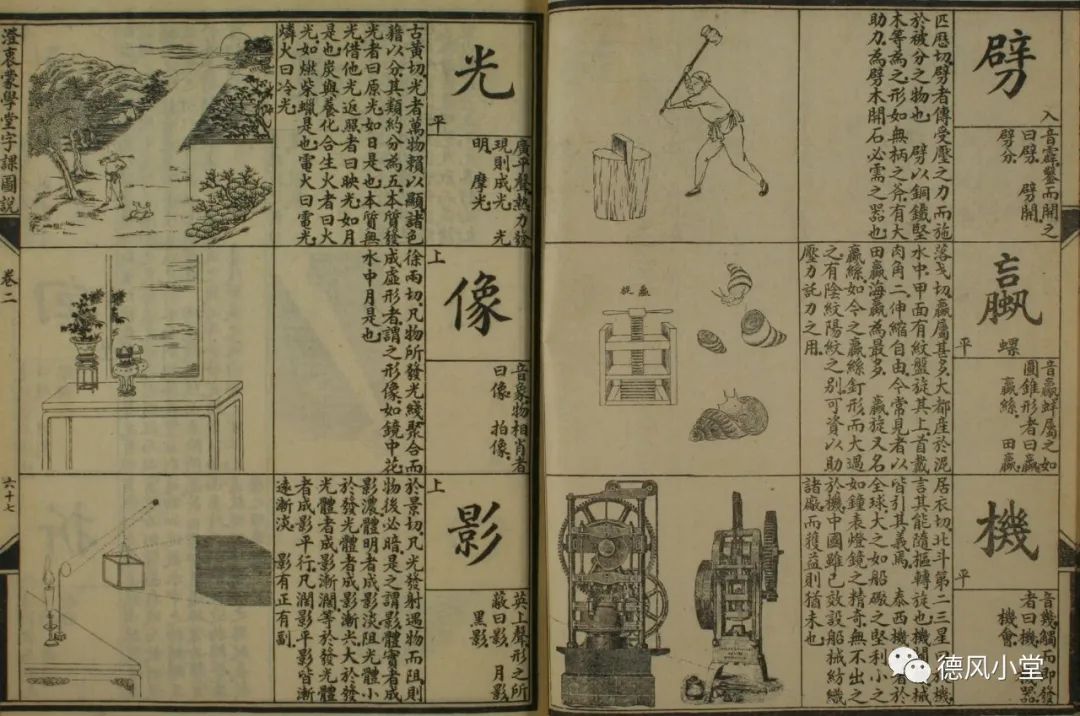 劈
入
音霹鑿而開之
曰劈 劈開
劈分
匹歷切劈者傳受壓之力而施
於被分之物也 劈以銅鐵堅
木等為之形如無柄之斧有大
助力為劈木開石必需之器也
蠃
螺
平
音羸蚌屬之如
圓錐形者曰蠃
蠃絲 田蠃
落戈切蠃屬甚多大都産於泥
水中甲面有紋盤旋其上首戴
肉角二伸縮自由今常見者以
田蠃海蠃為最多 蠃旋又名
蠃絲如今之蠃絲釘形而大過
之有陰紋陽紋之別可資以助
壓力託力之用
機
平
音幾觸而即發
者曰機 器
機會
居衣切北斗第二三星曰 機
言其能隨樞轉旋也機關 械
皆引其義焉 泰西機 著於
全球大之如船礮之堅利小之
如鐘表燈鏡之精奇無不出之
於機中國雖已效設船械紡織
諸廠而獲益則猶未也
光
平
廣平聲熱力發
現則成光 光
明 摩光
古黃切光者萬物賴以顯諸色
藉以分其類約分為五本質發
光者曰原光如日是也本質無
光借他光返照者曰映光如月
是也炭與養化合生火者曰火
光如燃柴蠟是也電火曰電光
燐火曰冷光
像
上
音象物相肖者
曰像 拍像
徐兩切凡物所發光綫聚合而
成虛形者謂之形像如鏡中花
水中月是也
影
上
英上聲形之所
蔽曰影 月影
黑影
於景切凡光發射遇物而阻則
物後必暗是之謂影體實者成
影濃體明者成影淡阻光體小
於發光體者成影漸尖大於發
光體者成影漸濶等於發光體
者成影平行凡濶影平影皆漸
遠漸淡 影有正有副
澄衷蒙學堂字課圖說
卷二
六十七
德风小堂